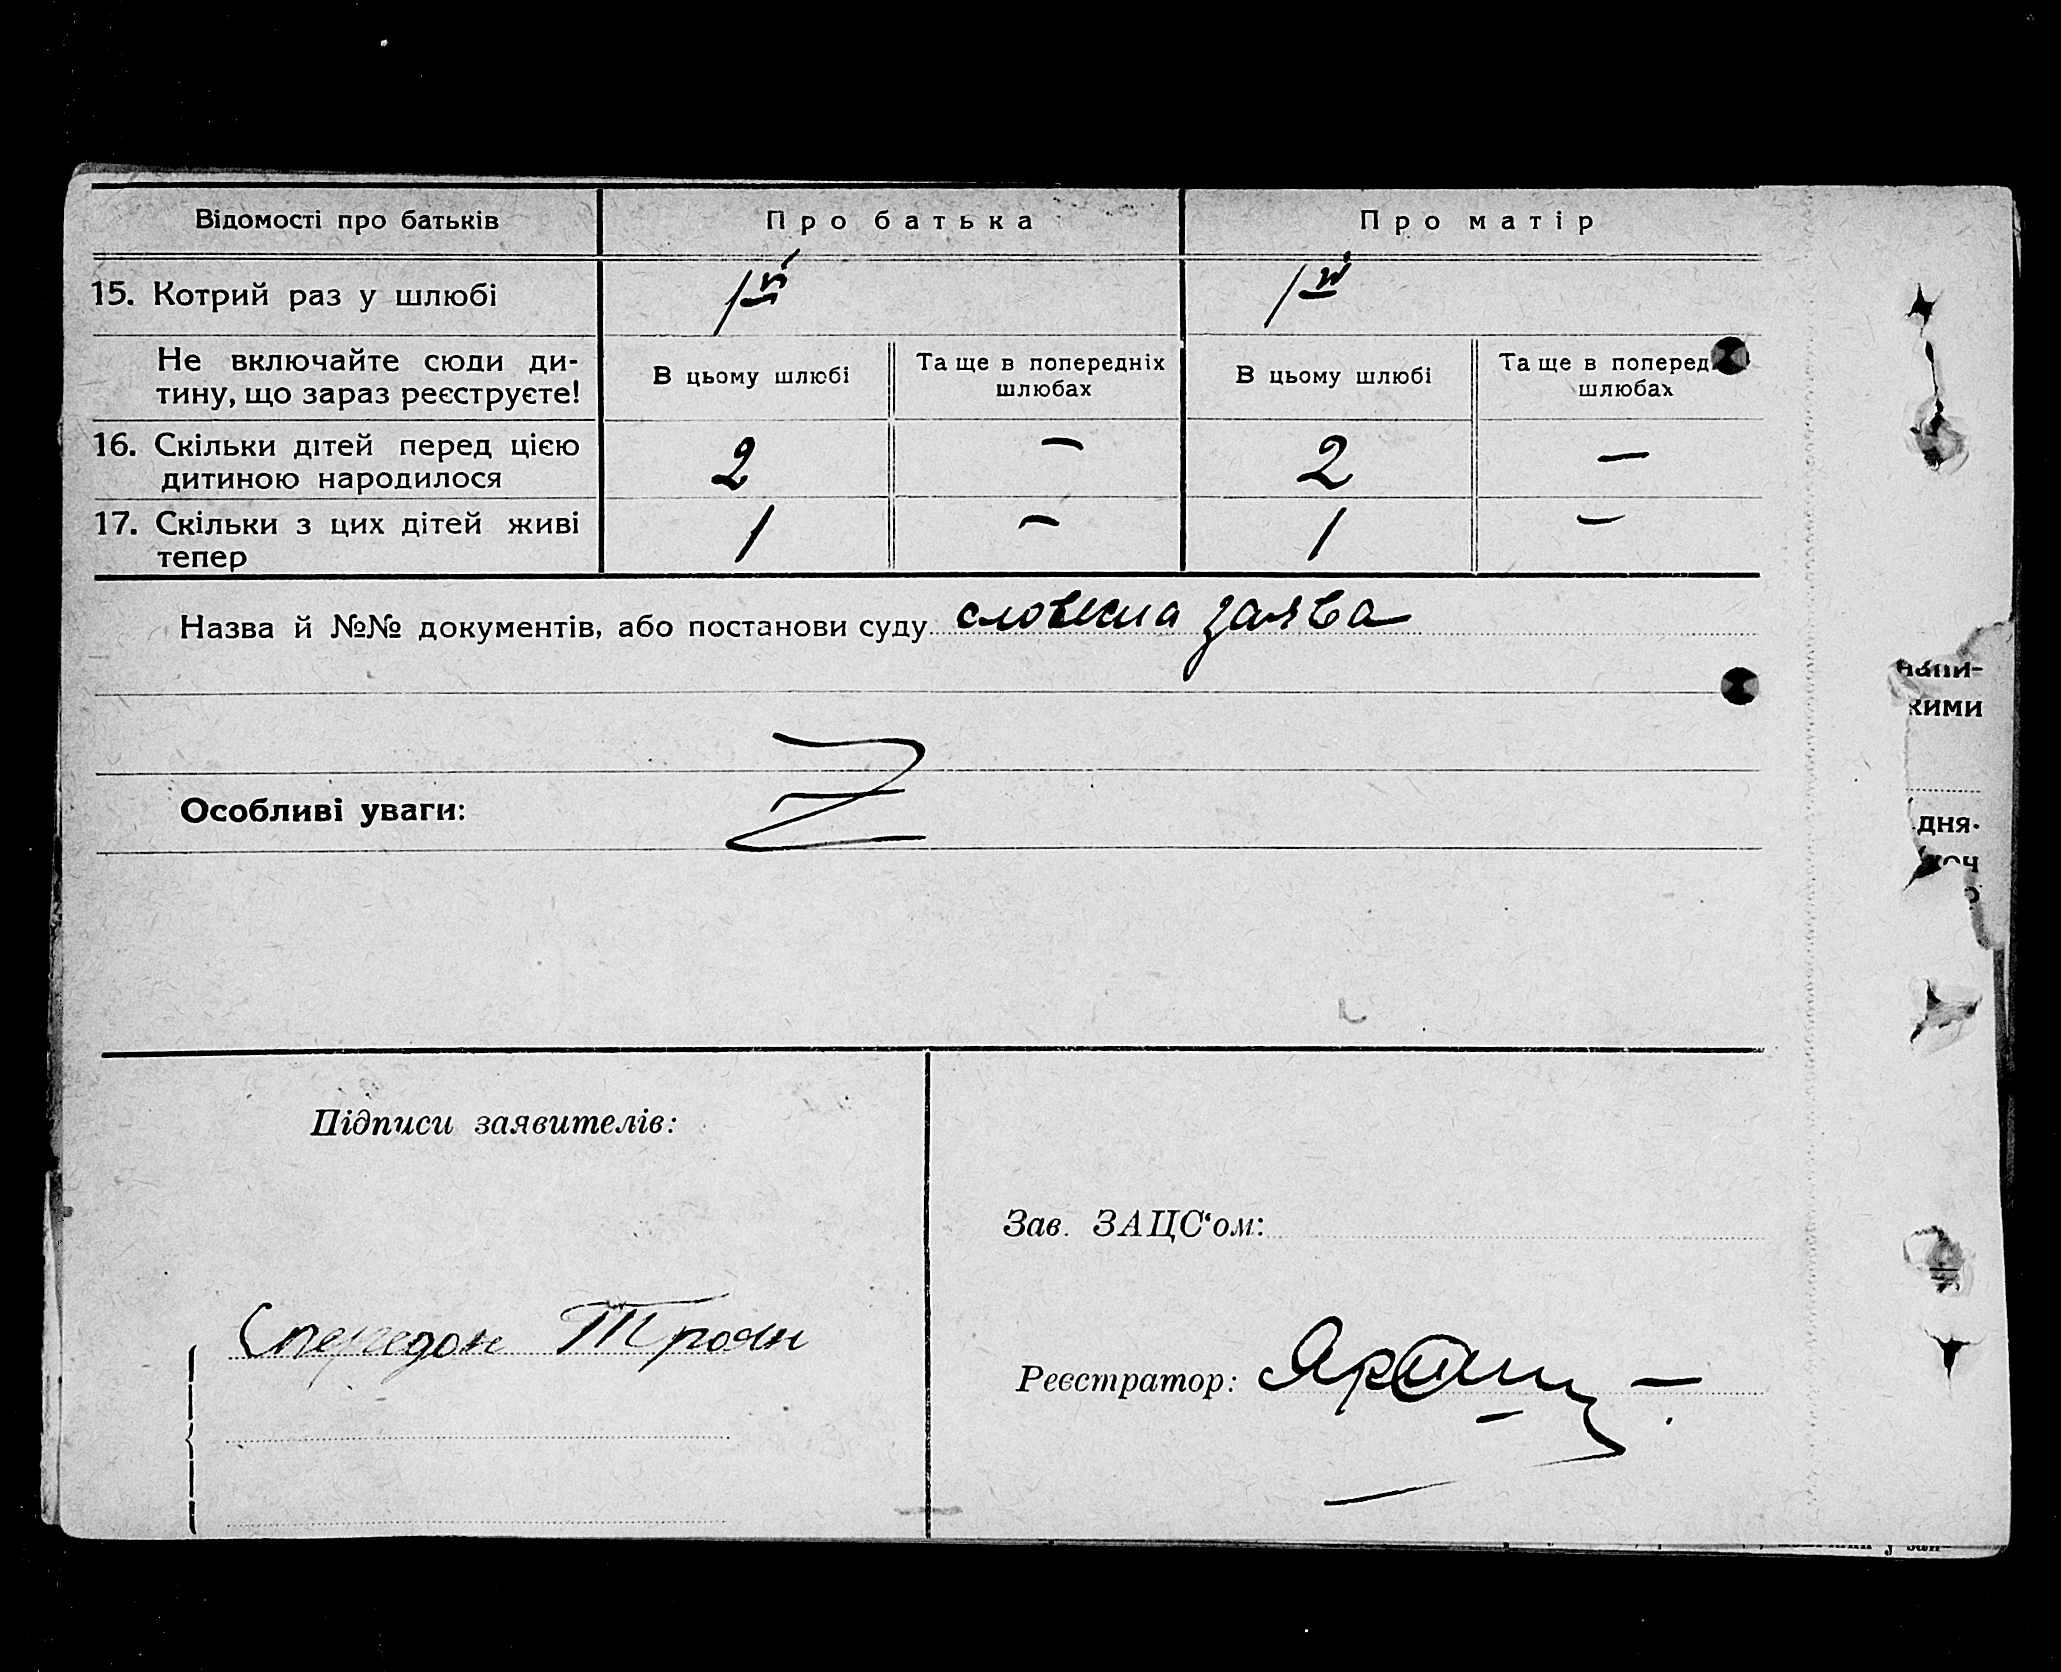 Відомості про батьків
Про батька
Про матір
15. Котрий раз у шлюбі
1й
1й
Не включайте сюди ди-
тину, що зараз реєструєте!
В цьому шлюбі
Та ще в попередніх
шлюбах
В цьому шлюбі
Та ще в поперед
шлюбах
16. Скільки дітей перед цією
дитиною народилося
2
—
2
—
17. Скільки з цих дітей живі
тепер
1
—
1
—
Назва й №№ документів, або постанови суду словесна заява
Особливі уваги:
Підписи заявителів:
Зав. ЗАЦС‘ом:
Спередон Троян
Реєстратор:
напи-
кими
дня.